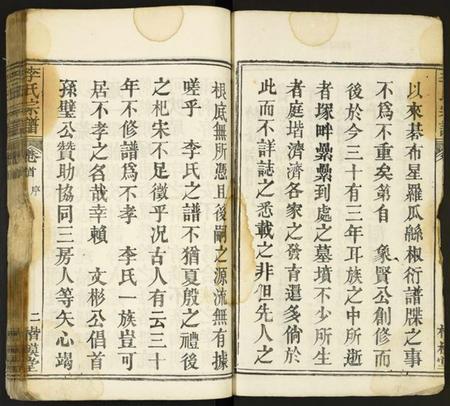 以來棊布星羅瓜緜椒衍譜牒之事
不為不重矣第自 象賢公創修而
後於今三十有三年耳族之中所逝
者塚畔纍纍到處之墓墳不少所生
者庭堦濟濟各家之發育還多倘於
此而不詳誌之悉載之非但先人之
根底無所憑且後嗣之源流無有據
嗟乎 李氏之譜不猶夏殷之禮後
之杞宋不足徵乎況古人有云三十
年不修譜為不孝 李氏一族豈可
居不孝之名哉幸賴 文彬公倡首
孫璧公贊助協同三房人等矢心竭
李氏宗譜
卷首 序
二
楷模堂